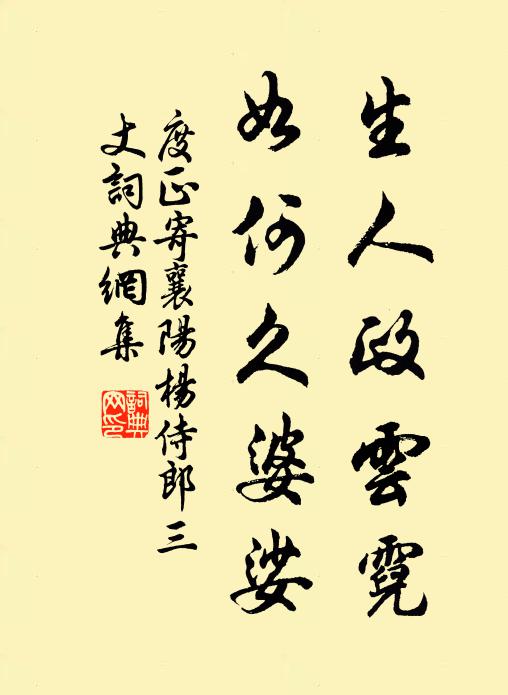 生人政雲霓
如何久婆娑
度正寄襄陽楊侍郎三
丈詞典網集
詞典
网印